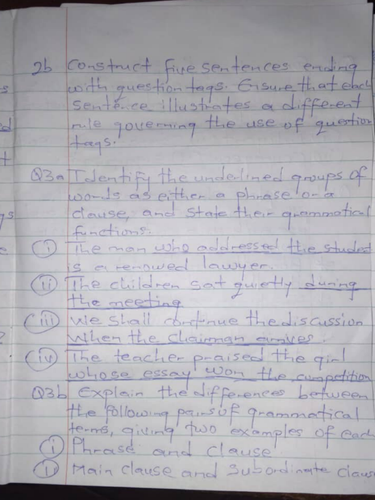 2b Construct five sentences ending
with question tags. Ensure that each
sentence illustrates a different
rule governing the use of question
tags.
Q3a Identify the underlined groups of
words as either a phrase or a
clause, and state their grammatical
functions.
(i) The man who addressed the student
is a renowed lawyer.
(ii) The children sat quietly during
the meeting
(iii) We shall continue the discussion
when the chairman arrives.
(iv) The teacher praised the girl
whose essay won the competition
Q3b Explain the differences between
the following pairs of grammatical
terms, giving two examples of each
(i) Phrase and Clause
(ii) Main clause and Subordinate clause